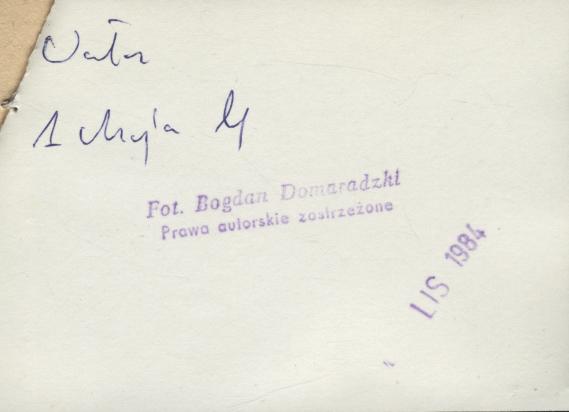 1 Maja
Fot. Bogdan Domaradzki
Prawa autorskie zastrzeżone
LIS 1984